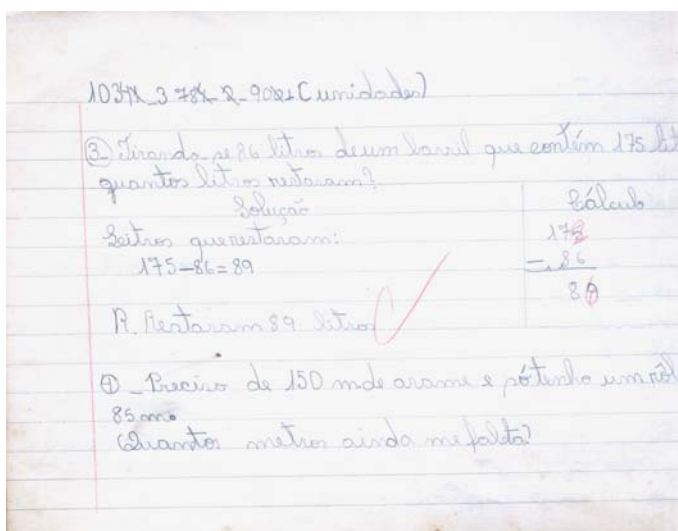 (unidades)
③ Tirando-se 86 litros de um barril que contém 175 lit
quantos litros restaram?
Solução Cálculo
Leitros que restaram: 175
175-86=89 - 86
89
R. Restaram 89 litros
④ - Preciso de 150 m de arame e só tenho um rôl
85 m.
Quantos metros ainda me falta?